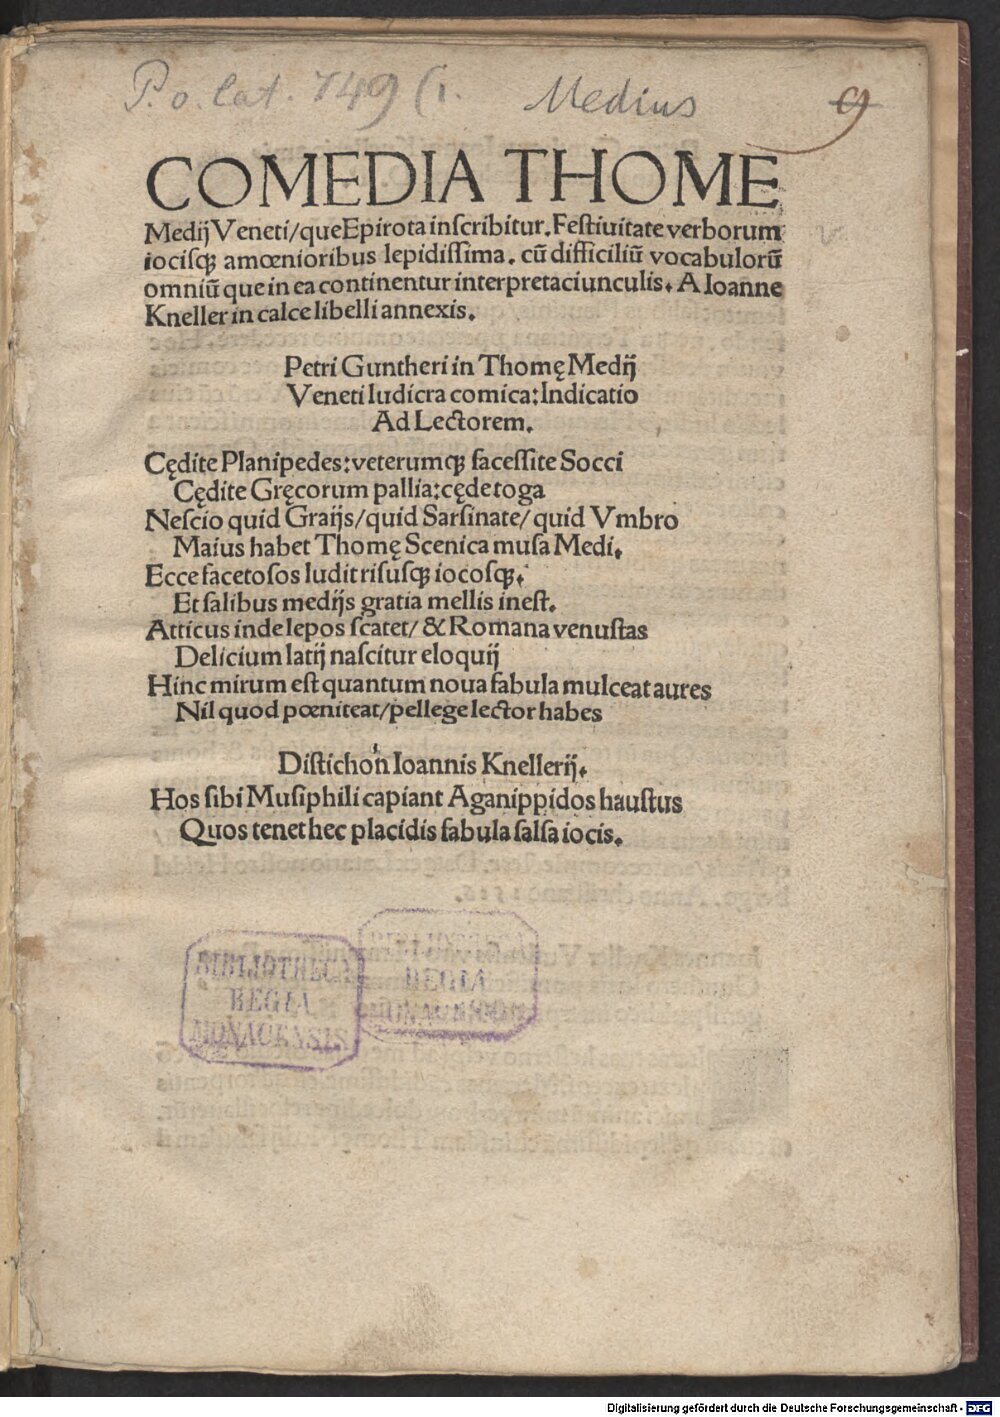 P.o. lat. 749 (1.
Medius
9
COMEDIA THOME
Medij Veneti/que Epirota inſcribitur. Feſtiuitate verborum
iociſqꝫ amœnioribus lepidiſſima. cū difficiliū vocabulorū
omniū que in ea continentur interpretaciunculis. A Ioanne
Kneller in calce libelli annexis.
Petri Guntheri in Thomę Medij
Veneti ludicra comica: Indicatio
Ad Lectorem.
Cędite Planipedes: veterumqꝫ faceſſite Socci
Cędite Gręcorum pallia: cęde toga
Neſcio quid Graijs/quid Sarſinate/quid Vmbro
Maius habet Thomę Scenica muſa Medi.
Ecce facetoſos ludit riſuſqꝫ iocoſqꝫ.
Et ſalibus medijs gratia mellis ineſt.
Atticus inde lepos ſcatet/ & Romana venuſtas
Delicium latij naſcitur eloquij
Hinc mirum eſt quantum noua fabula mulceat aures
Nil quod pœniteat/pellege lector habes
Diſtichon Ioannis Knellerij.
Hos ſibi Muſiphili capiant Aganippidos hauſtus
Quos tenet hec placidis fabula ſalſa iocis.
BIBLIOTHECA
REGIA
MONACENSIS
BIBLIOTHECA
REGIA
MONACENSIS
Digitalisierung gefördert durch die Deutsche Forschungsgemeinschaft - DFG